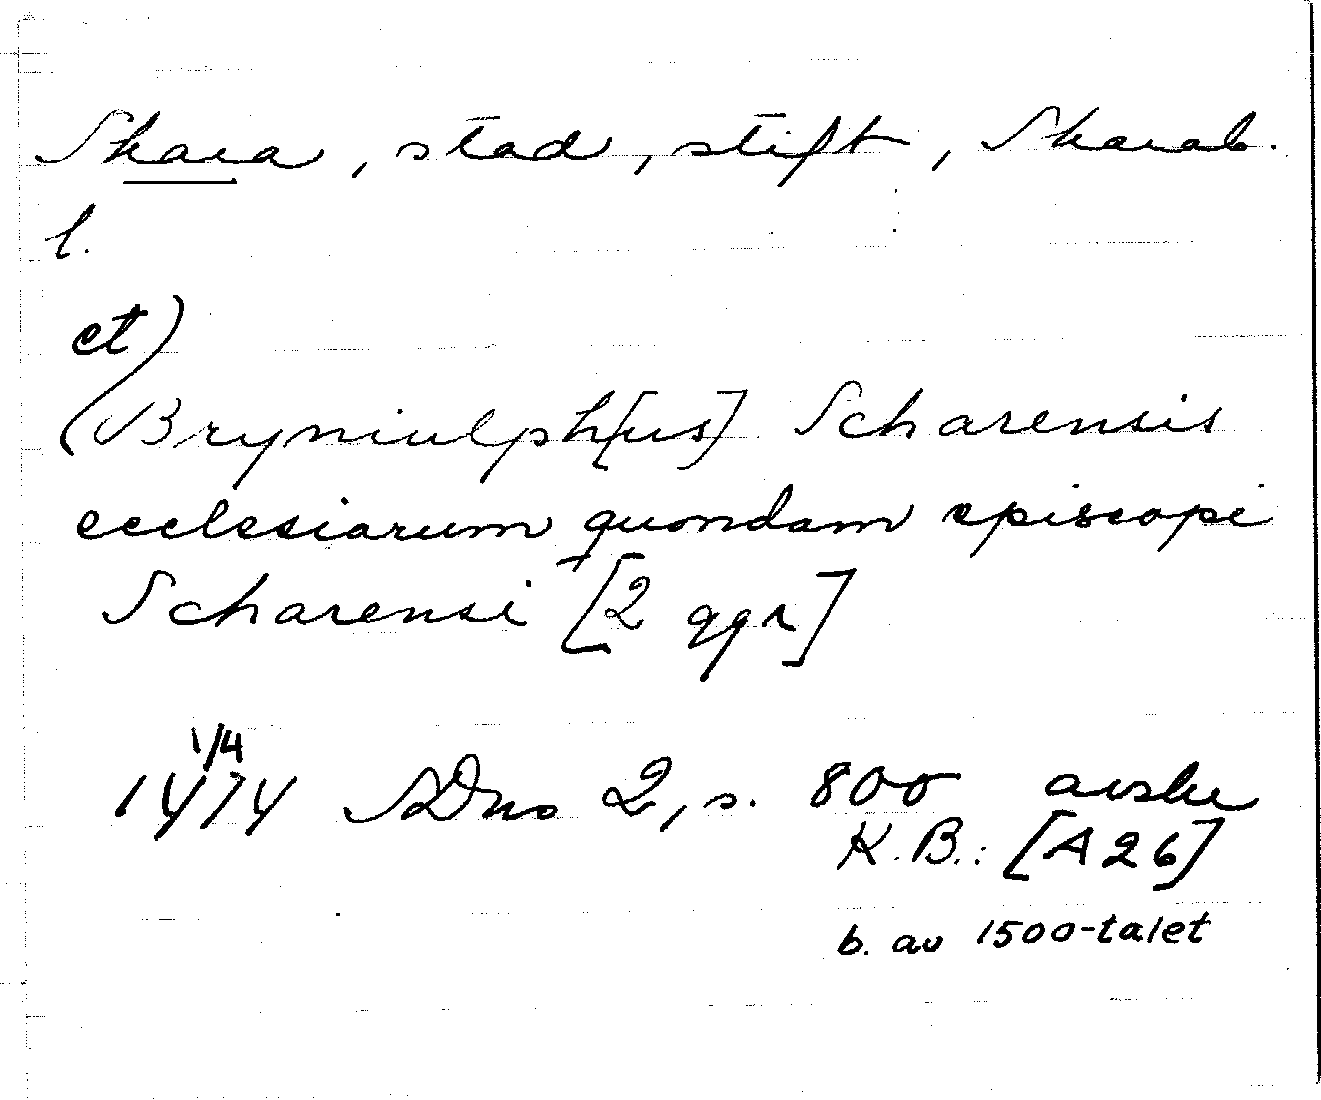 Skara, stad, stift, Skarab.
l.
et)
(Bryniulph[us] Scharensis
ecclesiarum quondam episcopi
Scharensi [2 ggr]
1/4
1474 SDns 2, s. 800 avskr
K.B.: [A 26]
b. av 1500-talet